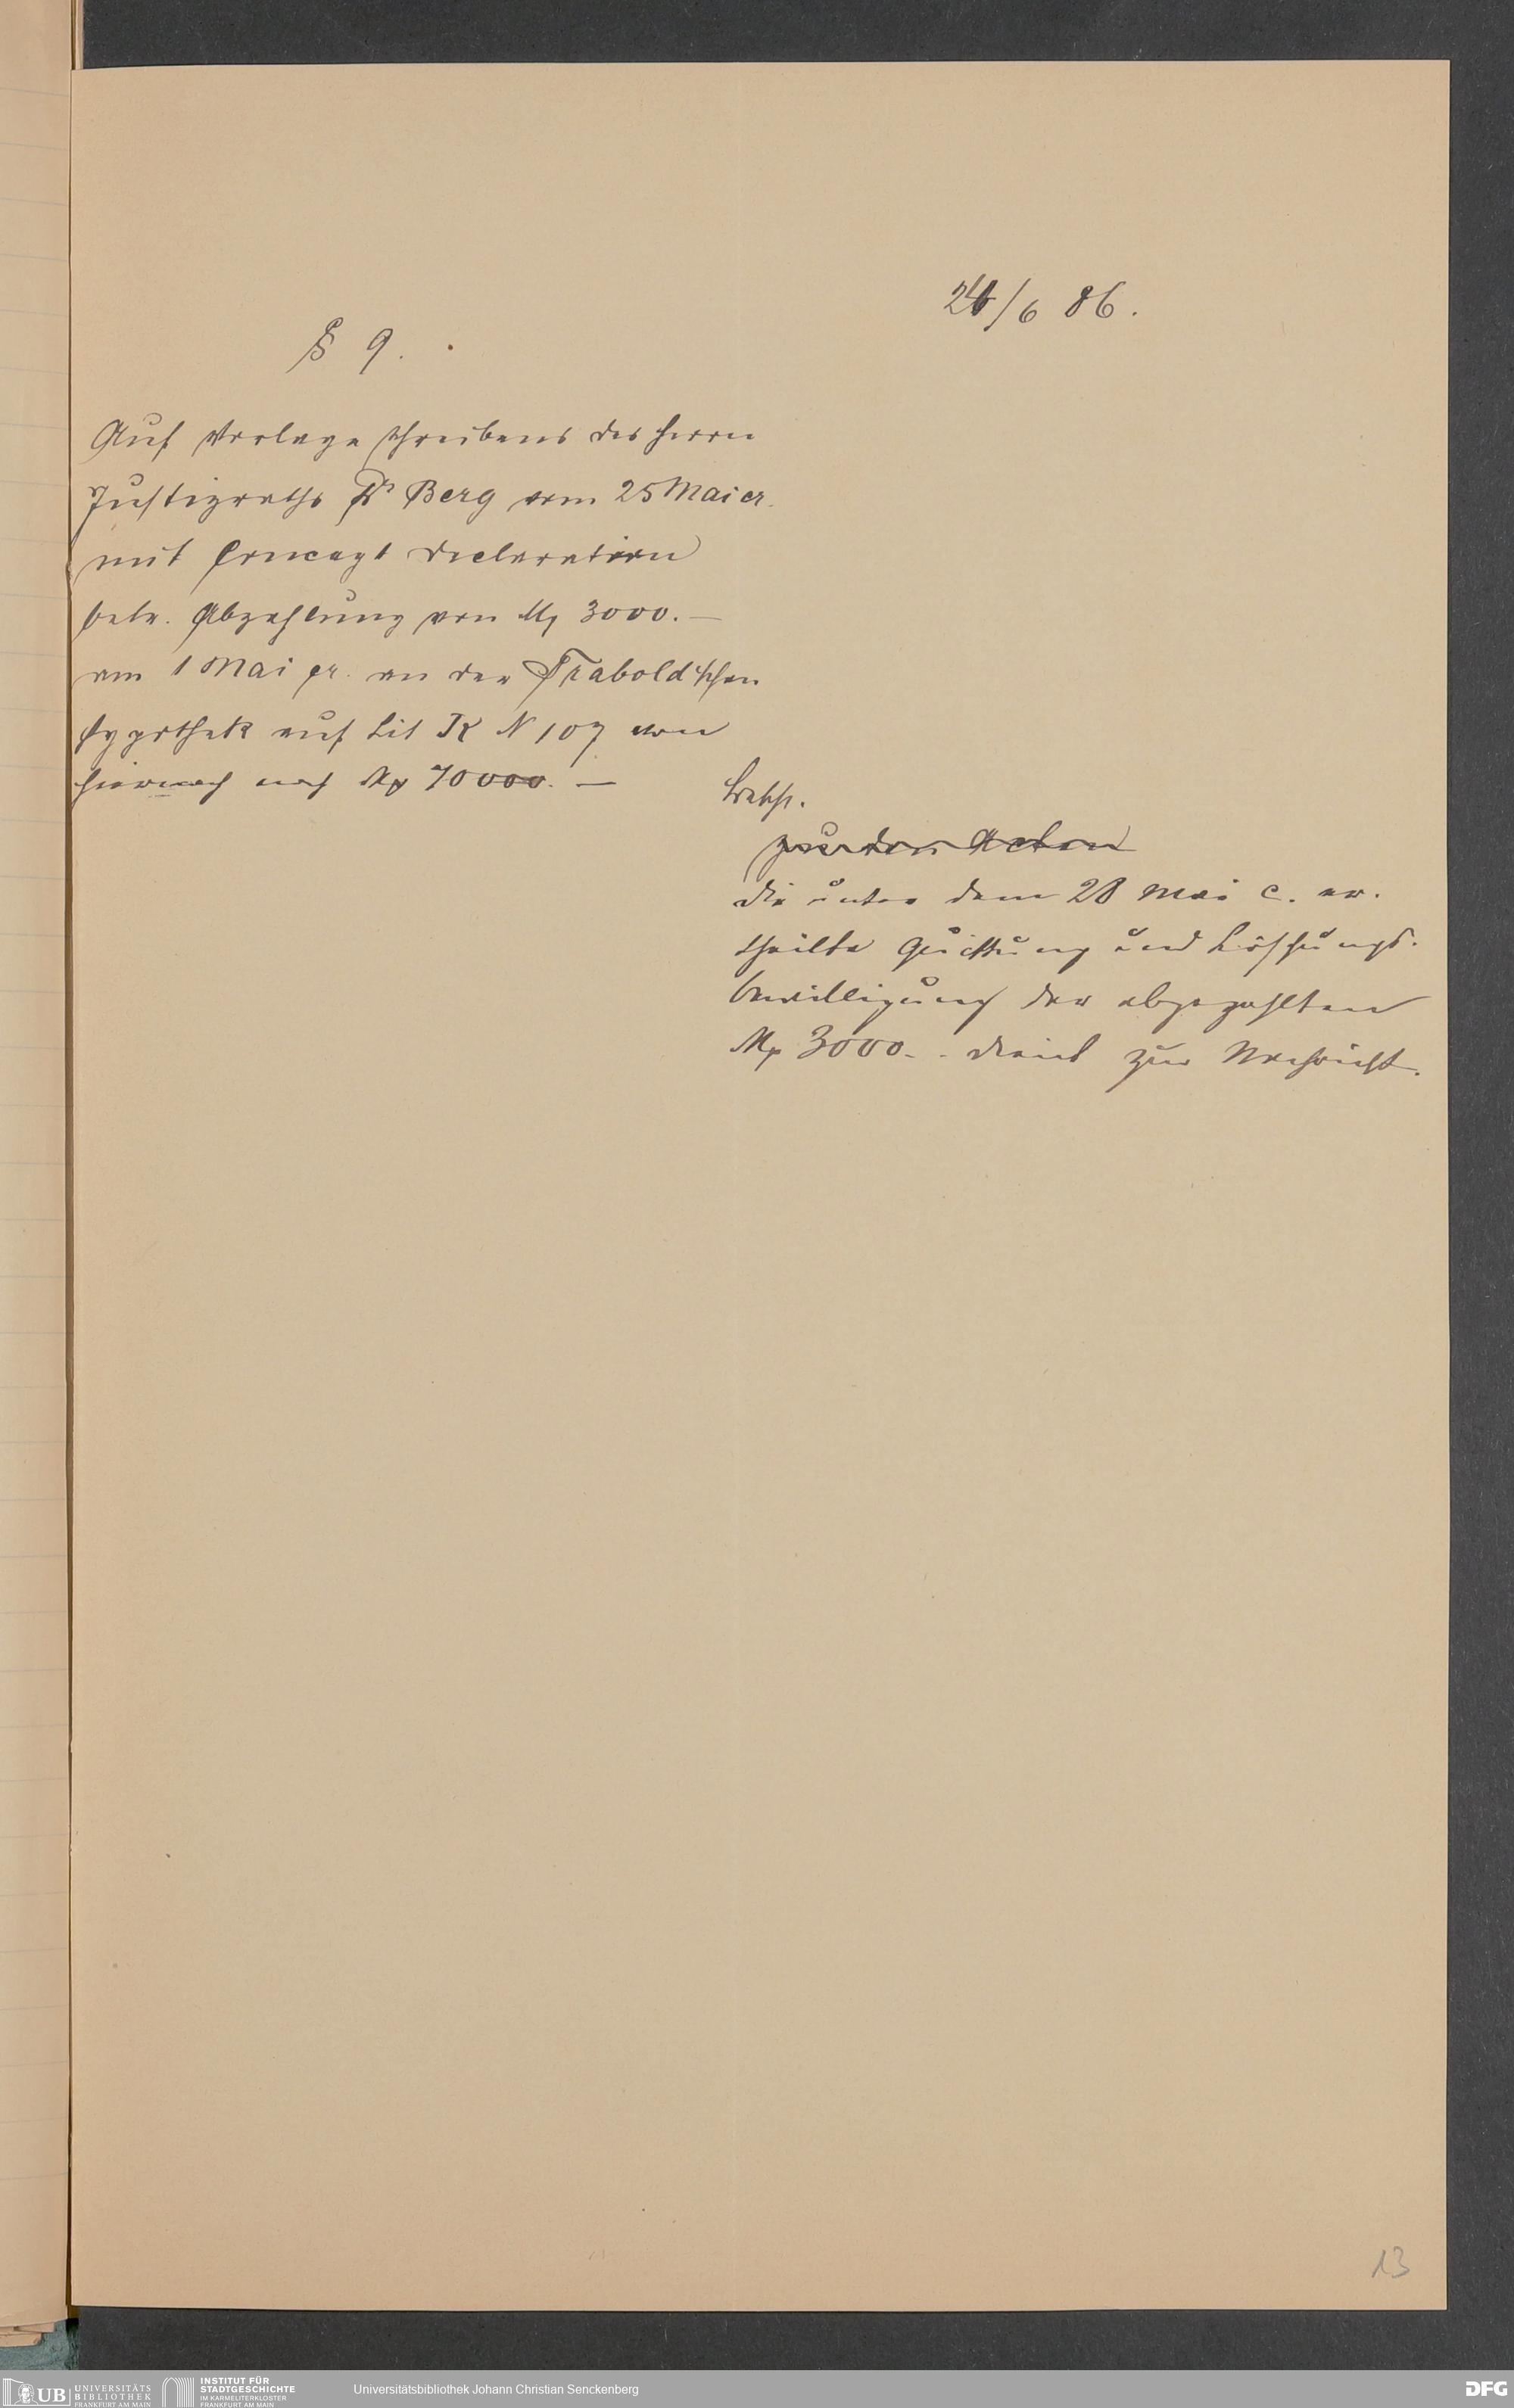 24/6 86.
§ 9.
Auf Vorlage Schreibens des Herrn
Justizraths Dr Berg vom 25 Mai cr.
mit Concept Declaration
betr. Abzahlung von M 3000.—
am 1 Mai cr. an der Trabold'schen
Hypothek auf Lit K N 107 von
hiernach noch M 70000.—
Beschl.
zu den Acten
die unter dem 28 Mai c. er-
theilte Quittung und Löschungs-
bewilligung der abgezahlten
M 3000.- dient zur Nachricht.
13
UB UNIVERSITÄTS
BIBLIOTHEK
FRANKFURT AM MAIN
INSTITUT FÜR
STADTGESCHICHTE
IM KARMELITERKLOSTER
FRANKFURT AM MAIN
Universitätsbibliothek Johann Christian Senckenberg
DFG